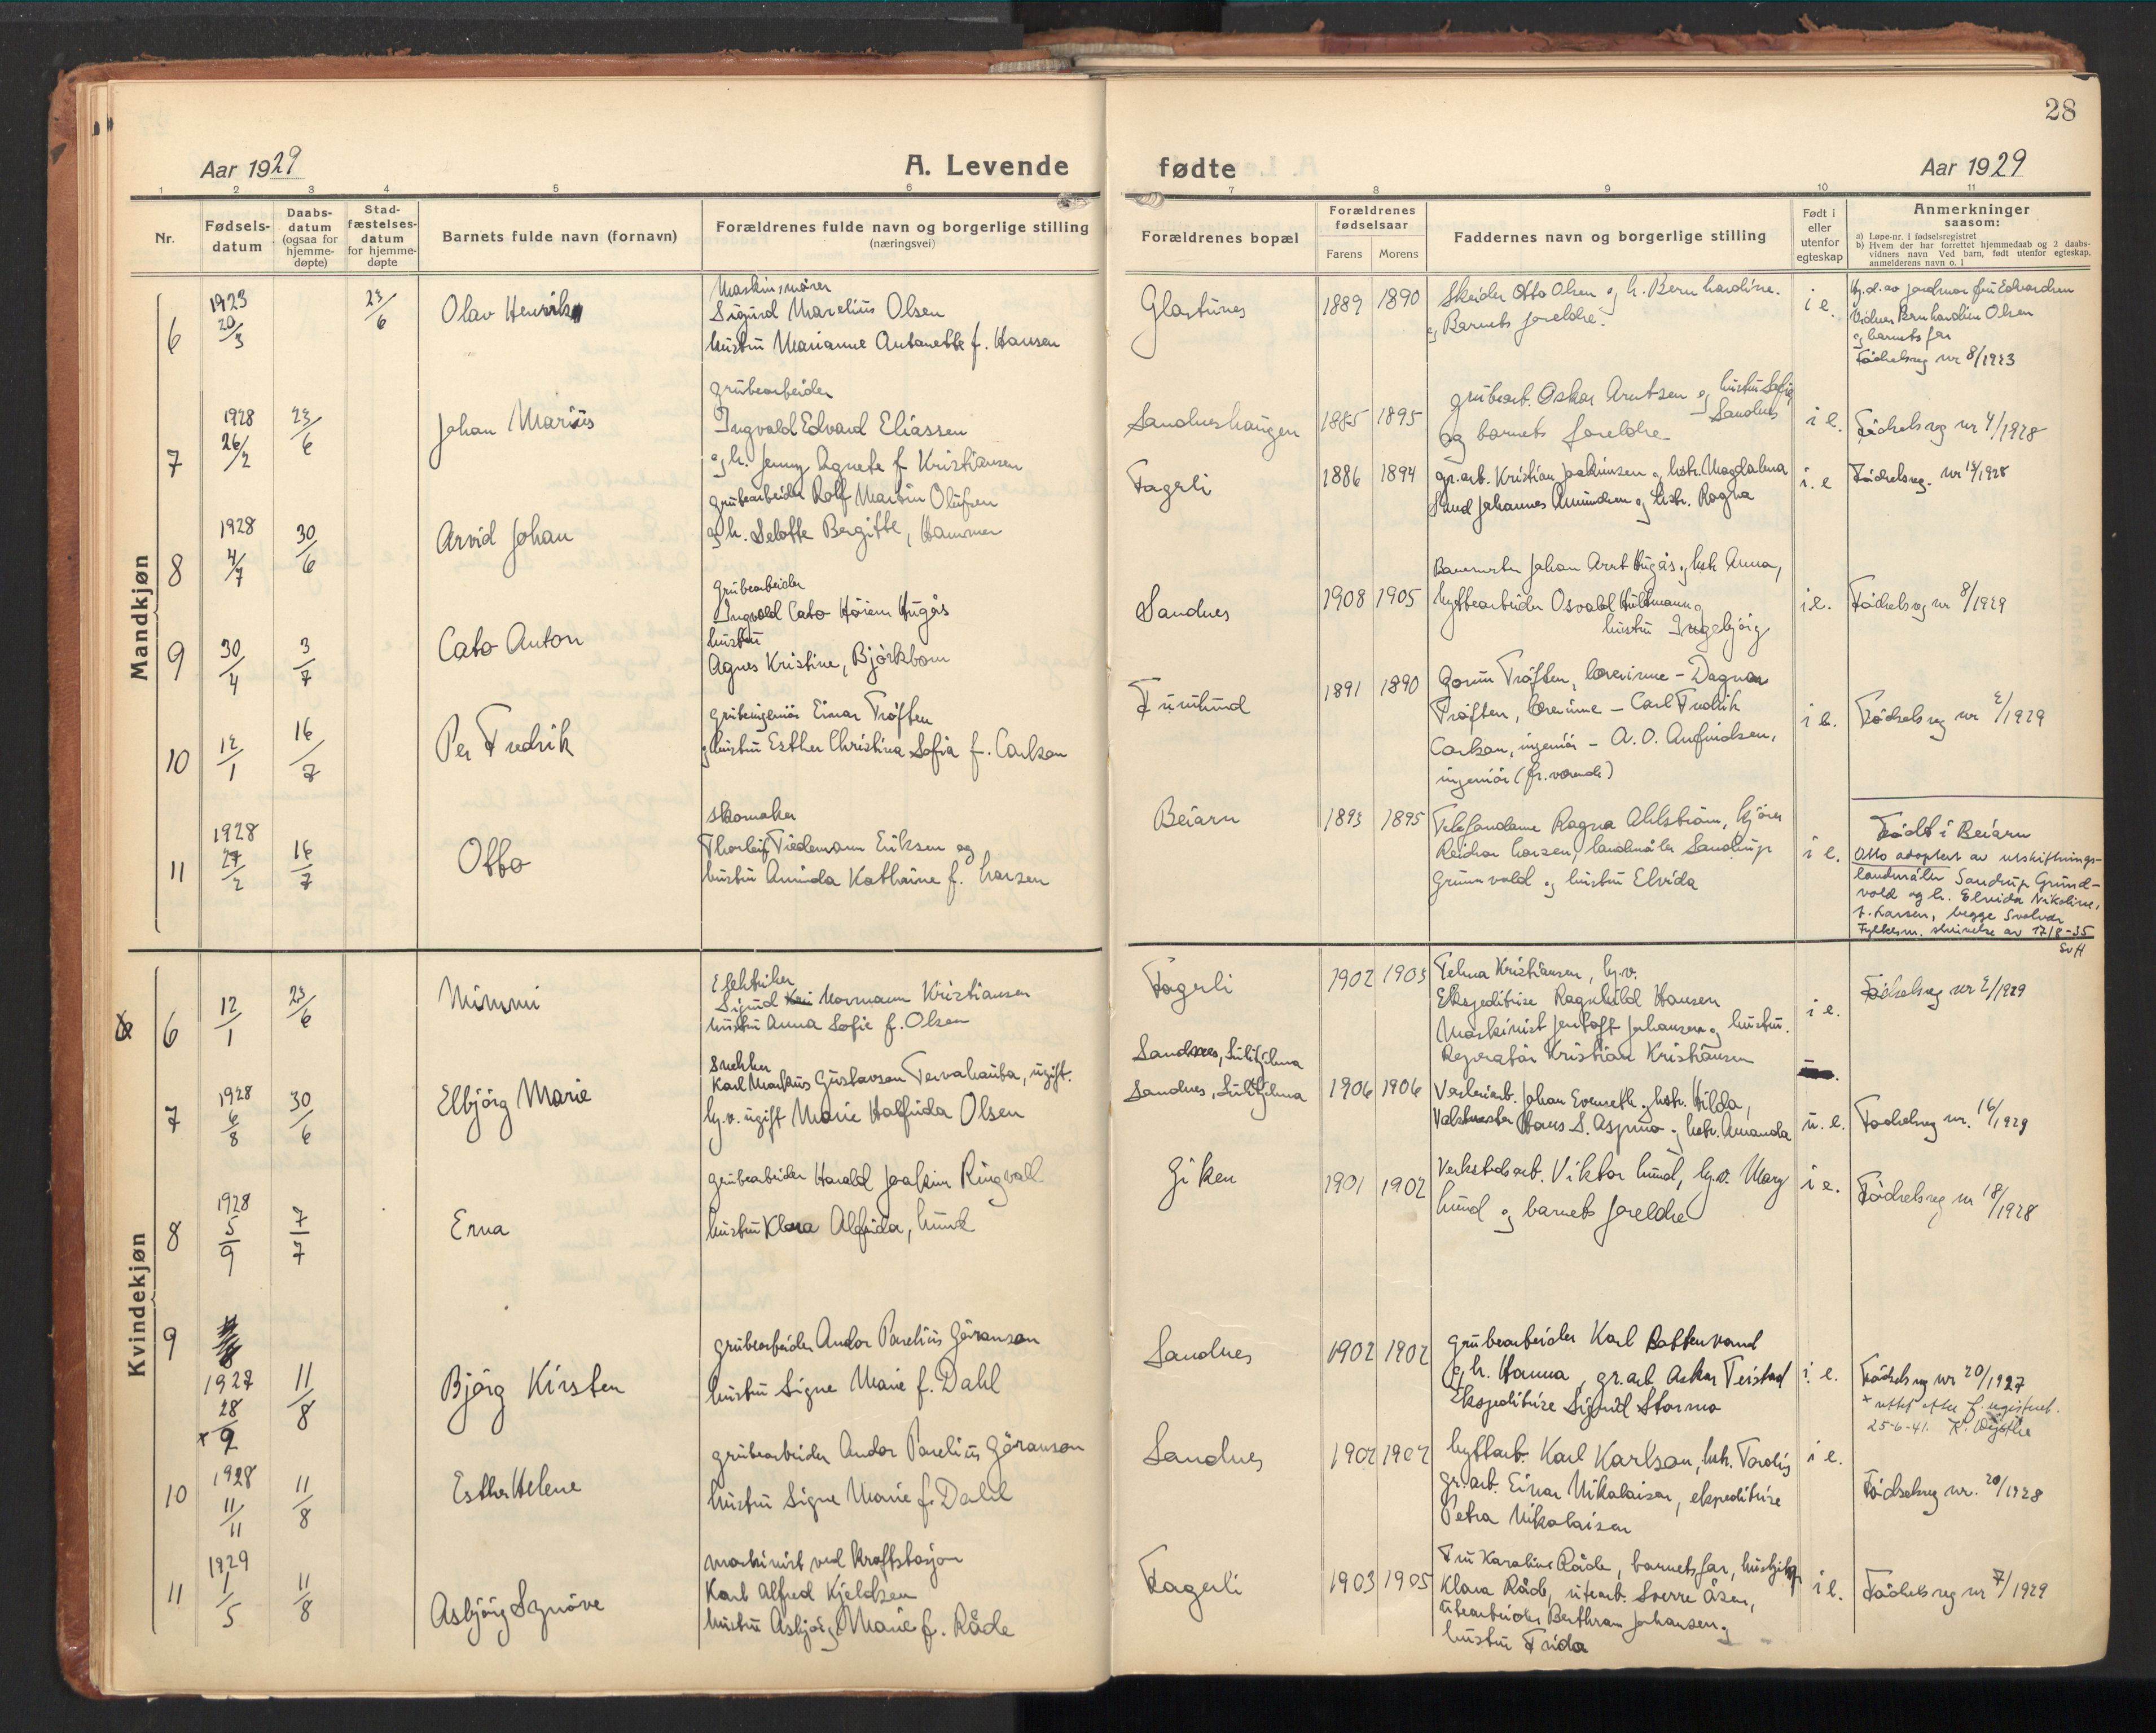 28
Aar 1929
A. Levende
fødte
Aar 1929
1 2 3 4 5 6 7 8 9 10 11
Nr.
Fødsels-
datum
Daabs-
datum
(ogsaa for
hjemme-
døpte)
Stad-
fæstelses-
datum
for hjemme-
døpte
Barnets fulde navn (fornavn)
Forældrenes fulde navn og borgerlige stilling
(næringsvei)
Forældrenes bopæl
Forældrenes
fødselsaar
Farens Morens
Faddernes navn og borgerlige stilling
Født i
eller
utenfor
egteskap
Anmerkninger
saasom:
a) Løpe-nr. i fødselsregistret
b) Hvem der har forrettet hjemmedaab og 2 daabs-
vidners navn Ved barn, født utenfor egteskap,
anmelderens navn o. l
Mandkjøn
6
1923
20/3
23/6
Olav Henrik
Sigurd Marelius Olsen
hustru Marianne Antonette f. Hansen
1889 1890
Skeider Otto Olsen og h. Bernhardine.
og Barnets foreldre.
i e.
Hj.d. av jordmor fru Edvardsen
Vidner Bernhardine Olsen
og barnets far
Fødselsreg nr 8/1923
7
1928
26/2
23/6
Johan Marius
grubearbeider
Ingvald Edvard Eliassen
og h. Jenny Agnete f Kristiansen
Sandneshaugen
1885 1895
grubearb. Oskar Arntsen og hustru Sofie,
Sandnes
og barnets foreldre
i e.
Fødselsreg nr 4/1928
8
1928
4/7
30/6
Arvid Johan
grubearbeider Rolf Martin Olufsen
og h. Selotte Bergitte, Hammer
Fagerli
1886 1894
gr.arb. Kristian Joakimsen og hstr. Magdalena
Johannes Amundsen og hstr. Ragna
i. e
Fødselsreg. nr 15/1928
9
30/4
3/7
Cato Anton
Grubearbeider
Ingvald Cato Hugås
hustru
Agnes Kristine, Björkbom
Sandnes
1908 1905
Johan Arnt Hugås og hstr Anna,
hyttearbeider Osvald Hultmann og
hustru Ingebjörg
i e.
Fødselsreg nr 8/1929
10
12/1
16/7
Per Fredrik
grubeingeniør Einar Trøften
og hustru Esther Christina Sofia f. Carlson
Furulund
1891 1890
Trøften, lærerinne - Dagmar
Trøften, lærerinne - Carl Fredrik
Carlson, ingeniør - A. O. Anfindsen,
ingeniør (fr. værende)
i e.
Fødselsreg nr 2/1929
11
1928
27/2
16/7
Otto
skomaker
Thorleif Tiedemann Eriksen og
hustru Aminda Kathrine f. Larsen
Beiarn
1893 1895
Telefondame Ragna Ahlström,
Reidar Larsen, landmåler Sandrup
Grunnvold og hustru Elvida
i e.
Født i Beiarn
Otto adoptert av utskiftnings-
landmåler Sandrup Grund-
vold og h. Elvida Nikoline,
f. Larsen, begge Svolvær
Fylkesm. skrivelse av 17/8-35
SvH
Kvindekjøn
6
12/1
23/6
Mimmi
Elektriker
Sigurd Normann Kristiansen
hustru Anna Sofie f. Olsen
Fagerli
1902 1903
Telma Kristiansen, hj.v.
Ekspeditrise Ragnhild Hansen
Maskinist Jentoft Johansen og hustru.
Reparatør Kristian Kristiansen
i e.
Fødselsreg nr 2/1929
7
1928
6/8
30/6
Elbjörg Marie
Snekker
Karl Markus Gustavson Tervahauta, ugift.
hj.v. ugift Marie Halfrida Olsen
Sandnes, Sulitjelma
Sandnes, Sulitjelma
1906 1906
Johan Evenseth og hstr. Hilda,
Hans S. Aspmo og hstr. Amanda
u. e.
Fødselsreg nr. 16/1929
8
1928
5/9
7/7
Erna
grubearbeider Harald Joakim Ringvall
hustru Klara Alfrida, Lund
Giken
1901 1902
Verkstedsarb. Viktor Lund, hj.v. Mary
Lund og barnets foreldre
i e.
Fødselsreg nr 18/1928
9
1927
28/9
x
11/8
Bjørg Kirsten
grubearbeider Andor Parelius Göranson
hustru Signe Marie f. Dahl
Sandnes
1902 1902
grubearbeider Karl Battenvand
og h. Hanna, gr.arb. Teistad
Ekspeditrise Sigrid Stormo
i. e.
Fødselsreg nr 20/1927
x rettet efter f. registret.
25-6-41.
10
1928
11/11
11/8
Esther Helene
grubearbeider Andor Parelius Göranson
hustru Signe Marie f. Dahl
Sandnes
1902 1902
hyttarb. Karl Karlson, hstr. Tordis
gr.arb. Einar Nikolaisen, ekspeditrise
Petra Nikolaisen
i e.
Fødselsreg nr. 20/1928
11
1929
1/5
11/8
Asbjörg Synöve
maskinist ved kraftstasjon
Karl Alfred Kjeldsen
hustru Asbjørg Marie f. Råde
Fagerli
1903 1905
Fru Karoline Råde, barnets far,
Klara Råde, utearb. Sverre Åsen,
utearbeider Berthram Johansen og
hustru Frida
i e.
Fødselsreg nr 7/1929